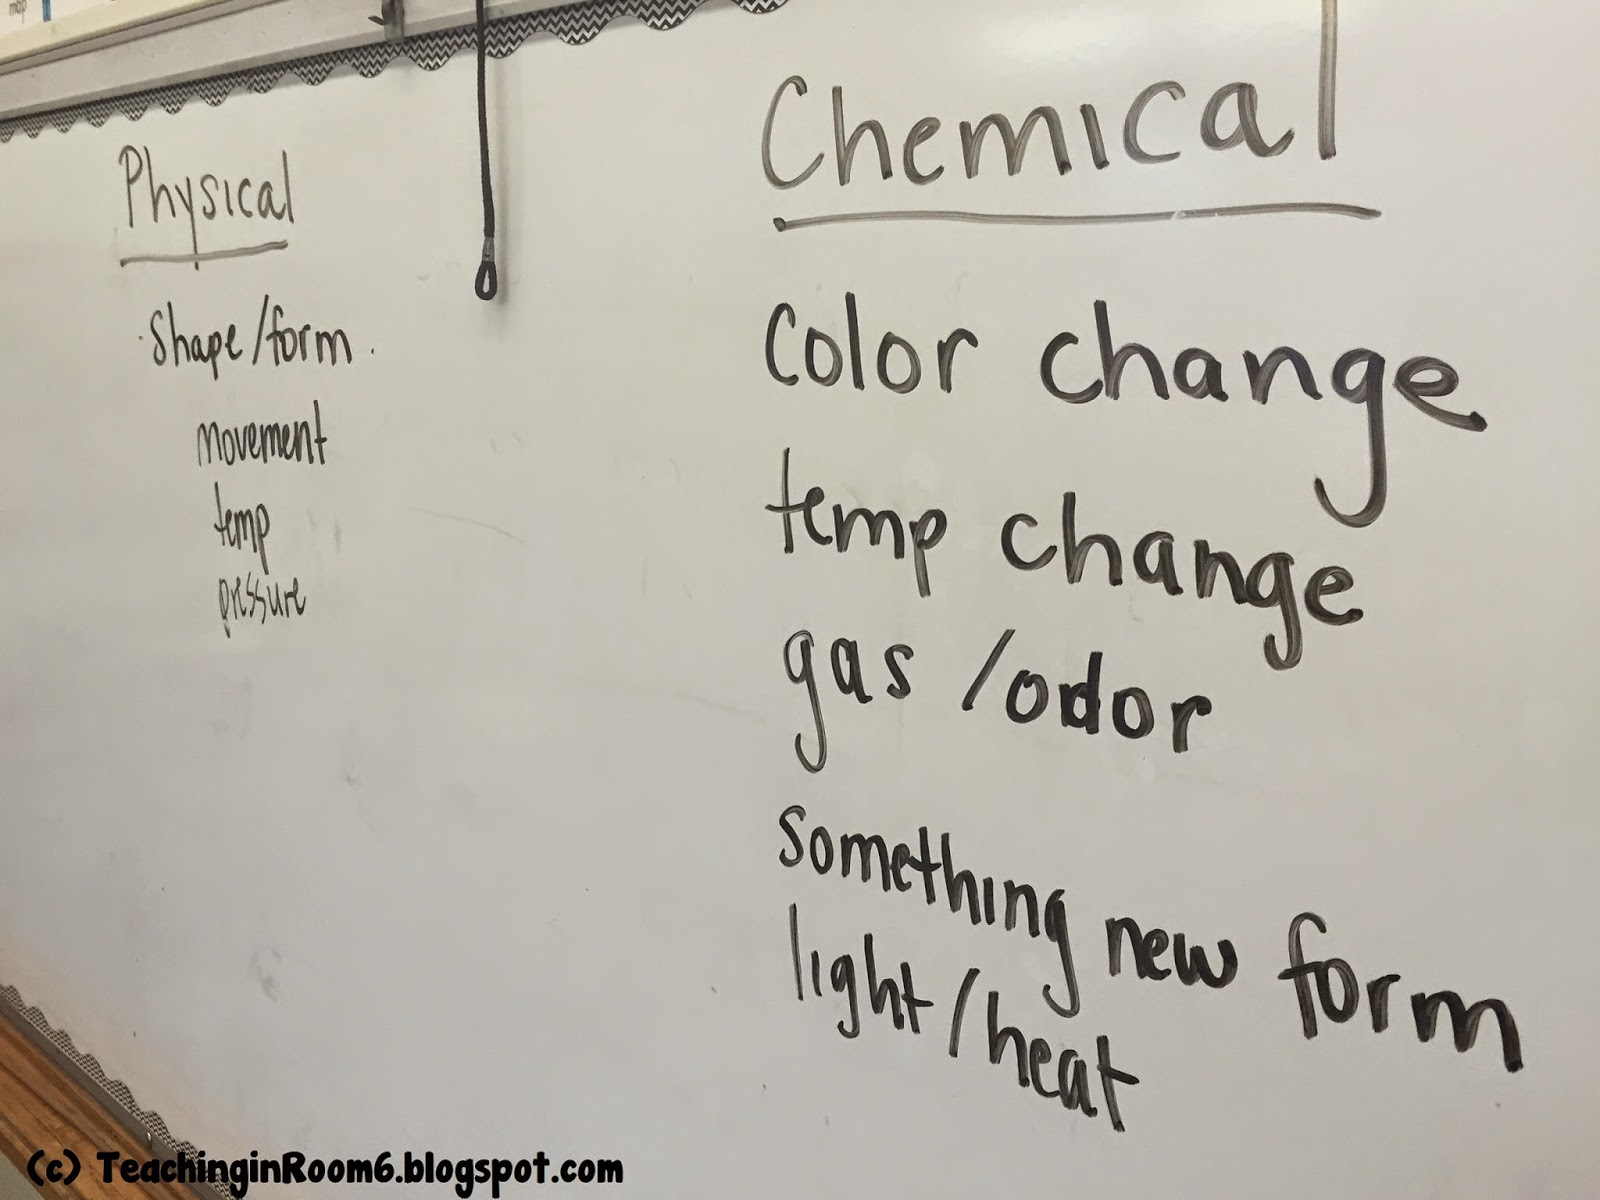 map
Physical
Shape/form
movement
temp
pressure
Chemical
color change
temp change
gas/odor
something new form
light/heat
(c) TeachinginRoom6.blogspot.com